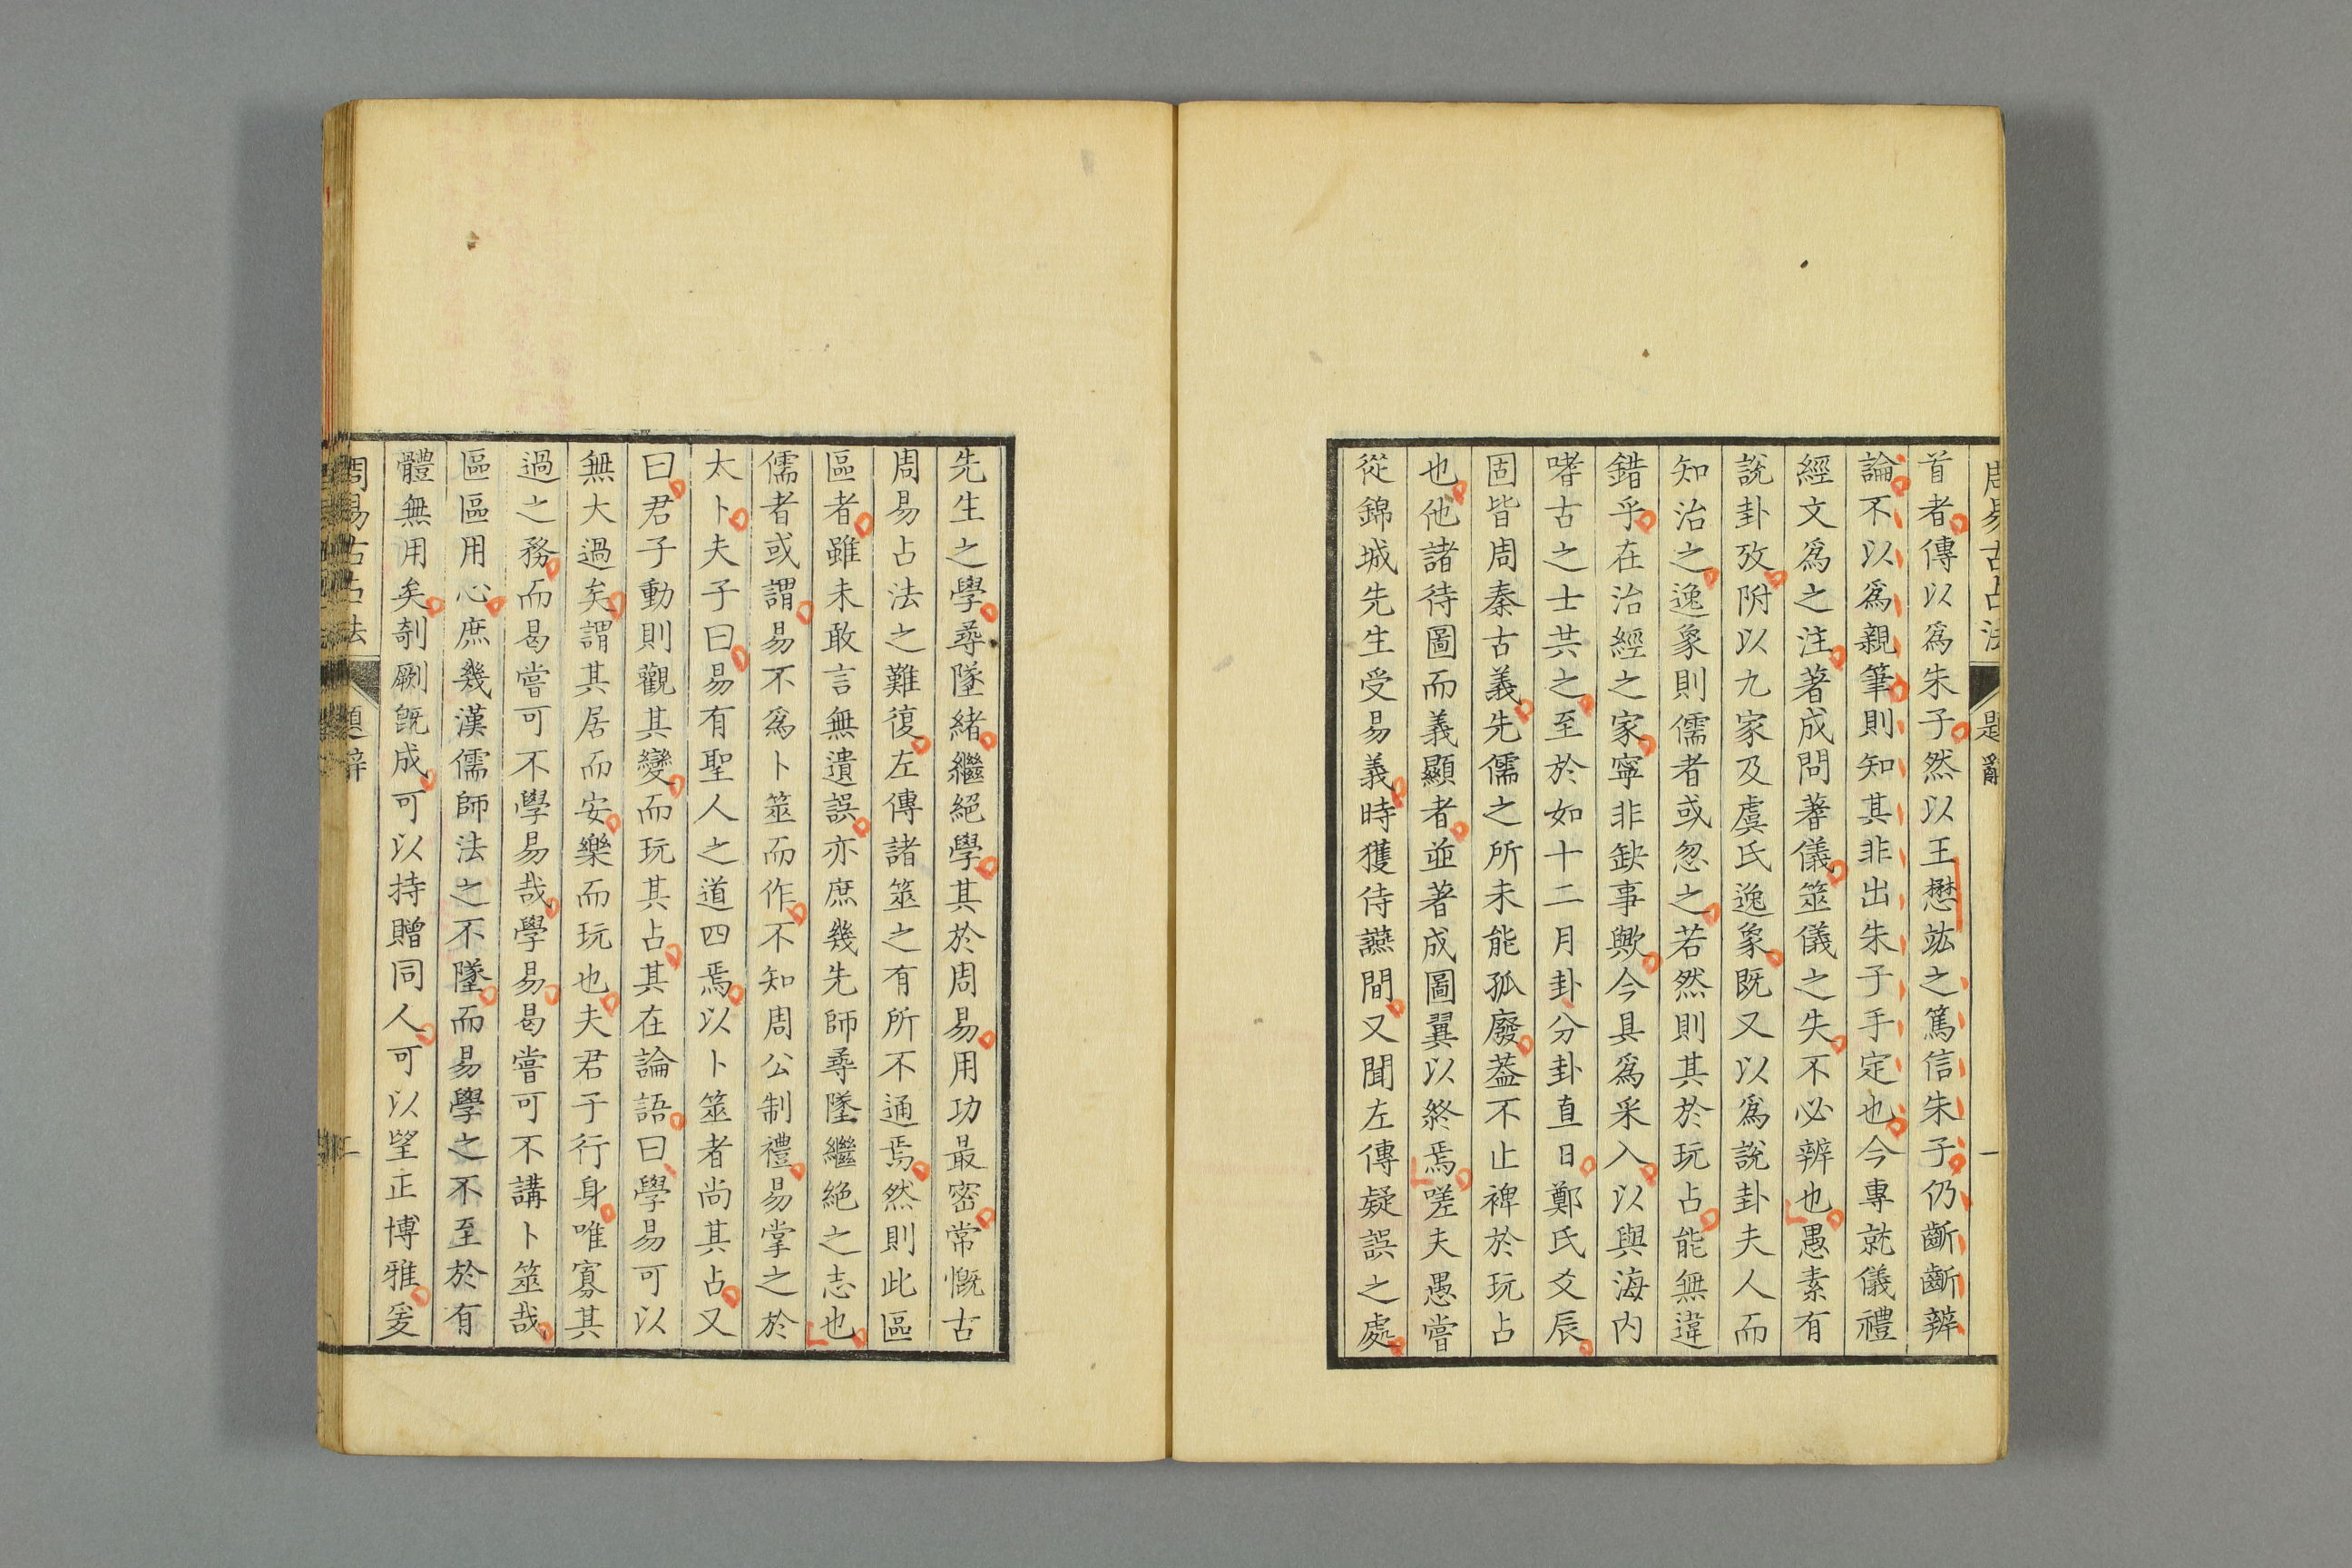 周易古占法 題辭 一
首者傳以爲朱子然以王懋竑之篤信朱子仍齗齗辨
論不以爲親筆則知其非出朱子手定也今專就儀禮
經文爲之注著成問蓍儀筮儀之失不必辨也愚素有
說卦攷附以九家及虞氏逸象既又以爲說卦夫人而
知治之逸象則儒者或忽之若然則其於玩占能無違
錯乎在治經之家寧非缺事歟今具爲采入以與海內
嗜古之士共之至於如十二月卦分卦直日鄭氏爻辰
固皆周秦古義先儒之所未能孤廢葢不止裨於玩占
也他諸待圖而義顯者並著成圖翼以終焉嗟夫愚嘗
從錦城先生受易義時獲待讌間又聞左傳疑誤之處
先生之學尋墜緒繼絕學其於周易用功最密常慨古
周易占法之難復左傳諸筮之有所不通焉然則此區
區者雖未敢言無遺誤亦庶幾先師尋墜繼絕之志也
儒者或謂易不爲卜筮而作不知周公制禮易掌之於
太卜夫子曰易有聖人之道四焉以卜筮者尚其占又
曰君子動則觀其變而玩其占其在論語曰學易可以
無大過矣謂其居而安樂而玩也夫君子行身唯寡其
過之務而曷嘗可不學易哉學易曷嘗可不講卜筮哉
區區用心庶幾漢儒師法之不墜而易學之不至於有
體無用矣剞劂旣成可以持贈同人可以望正博雅爰
周易古占法 題辭 二